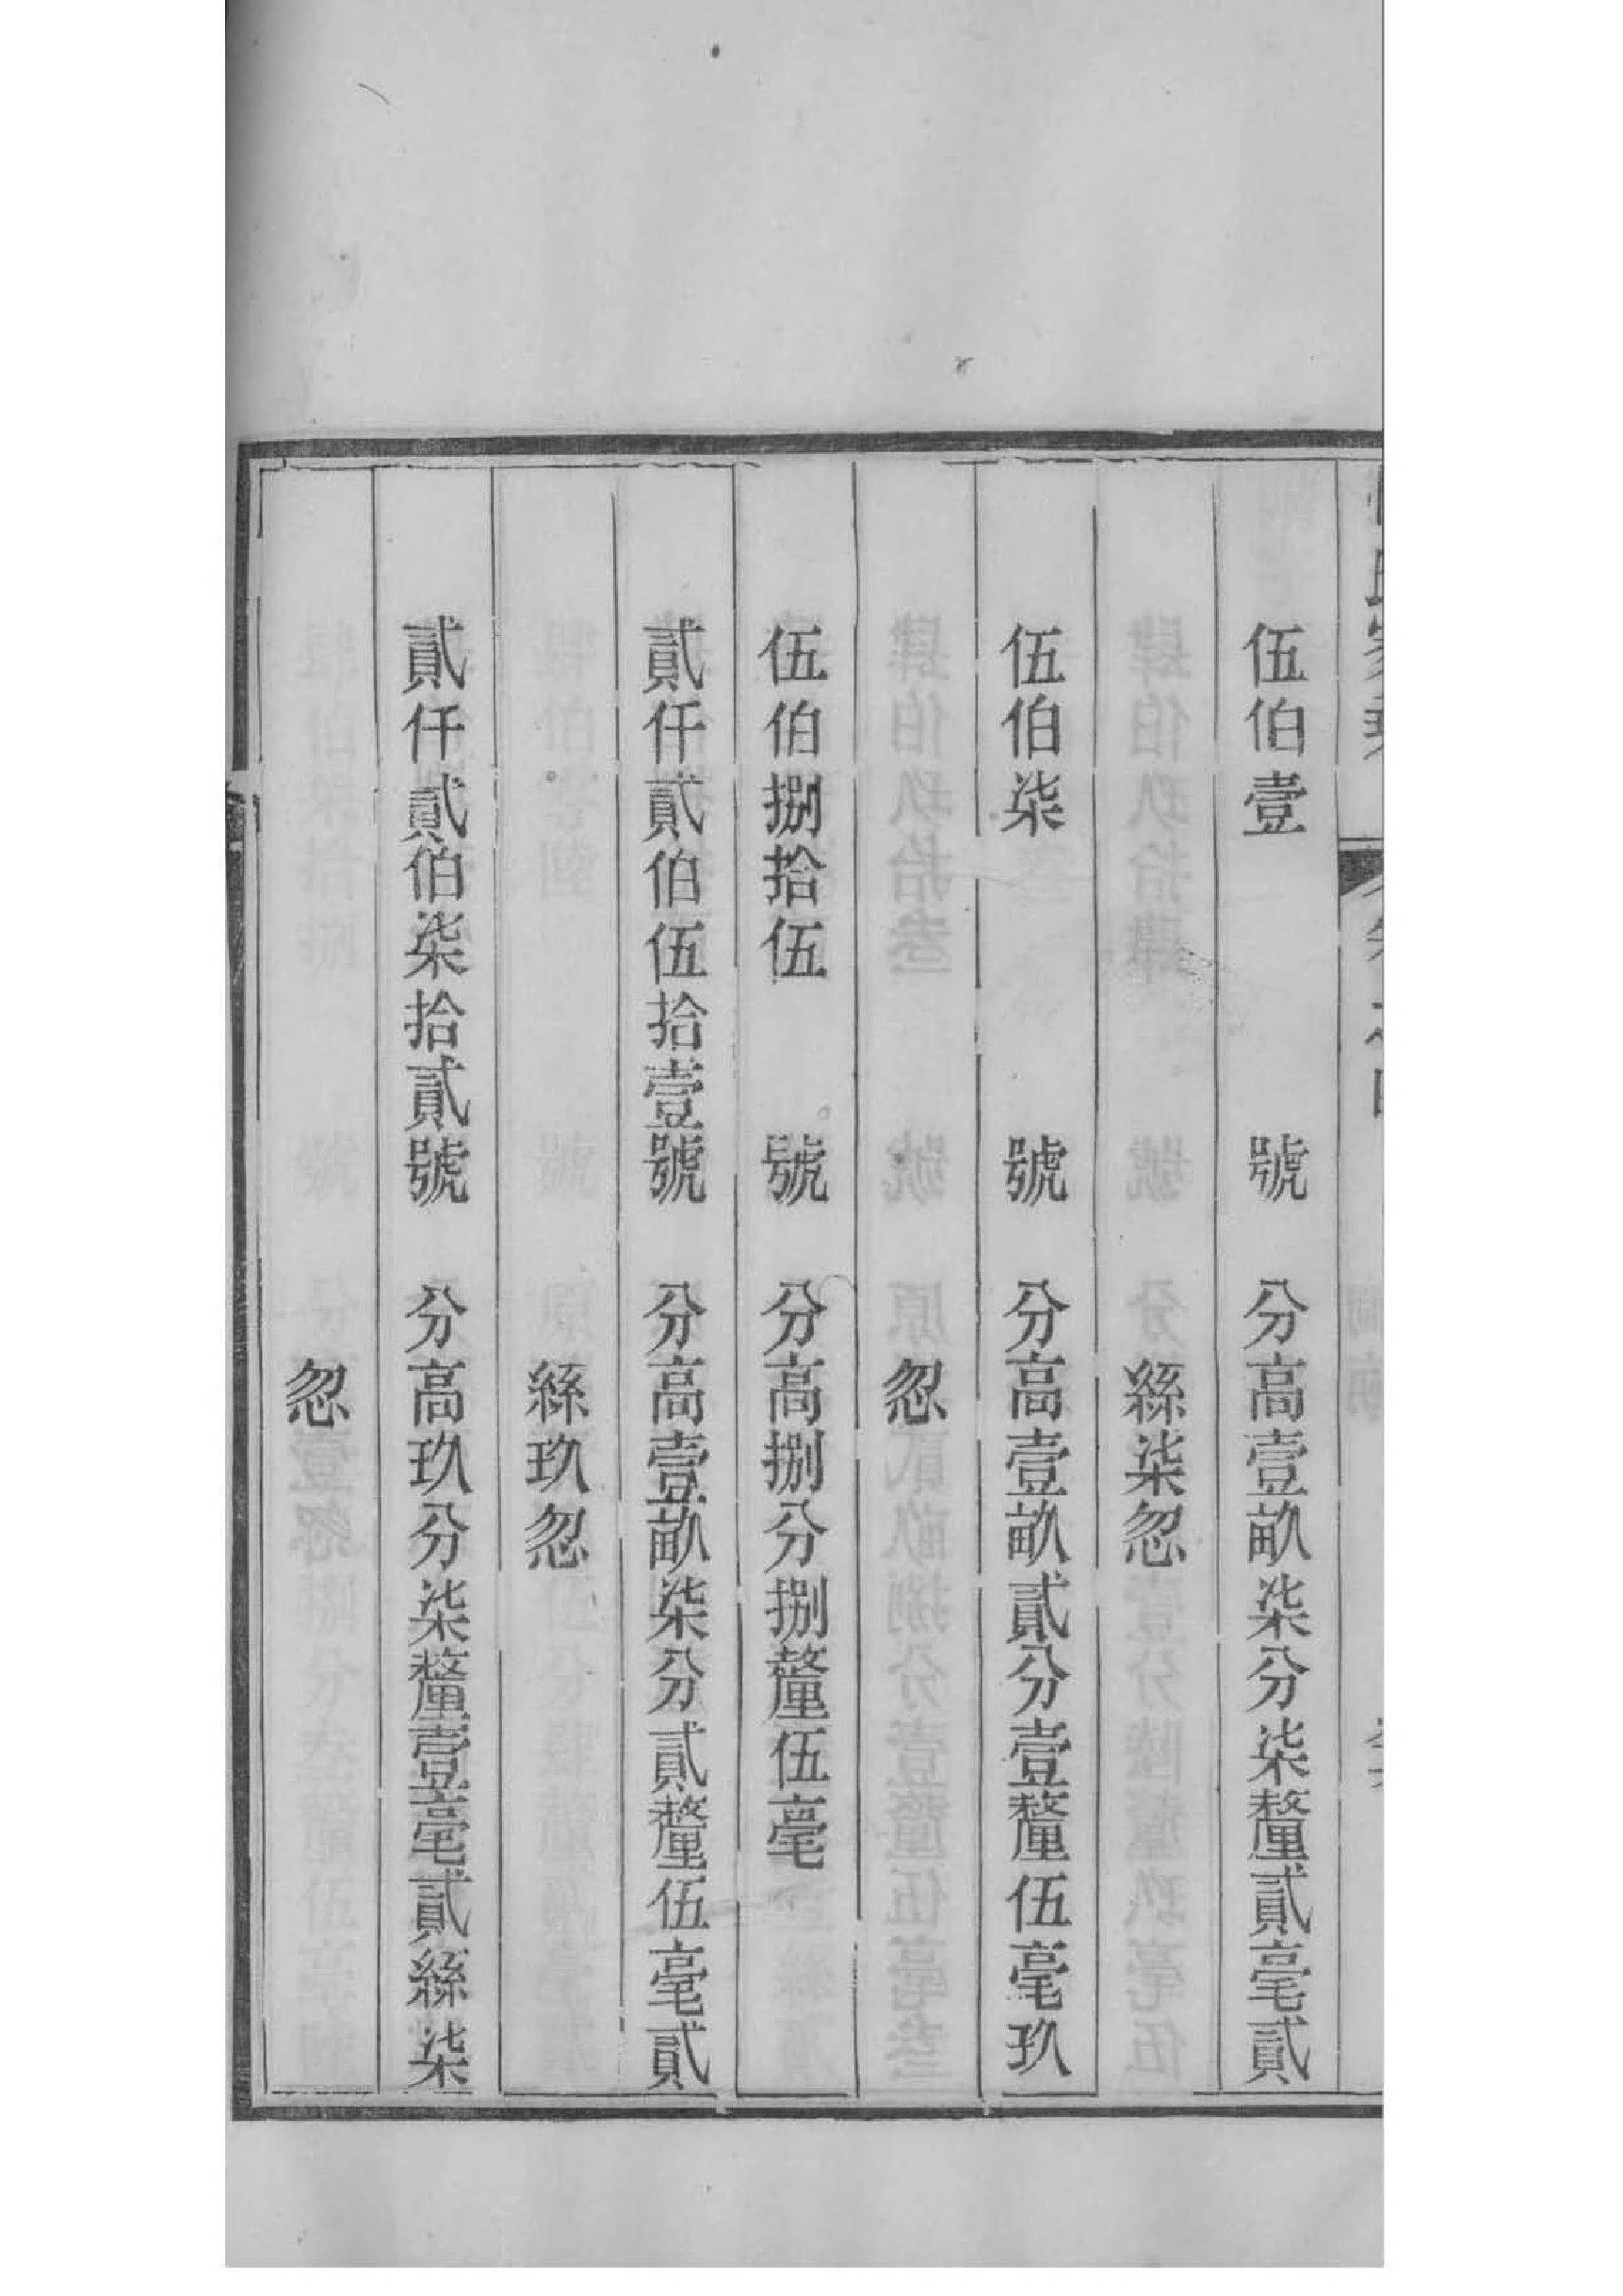 伍伯壹 號 分高壹畝柒分柒釐貳毫貳
絲柒忽
伍伯柒 號 分高壹畝貳分壹釐伍毫玖
忽
伍伯捌拾伍 號 分高捌分捌釐伍毫
貳仟貳伯伍拾壹號 分高壹畝柒分貳釐伍毫貳
絲玖忽
貳仟貳伯柒拾貳號 分高玖分柒釐壹毫貳絲柒
忽